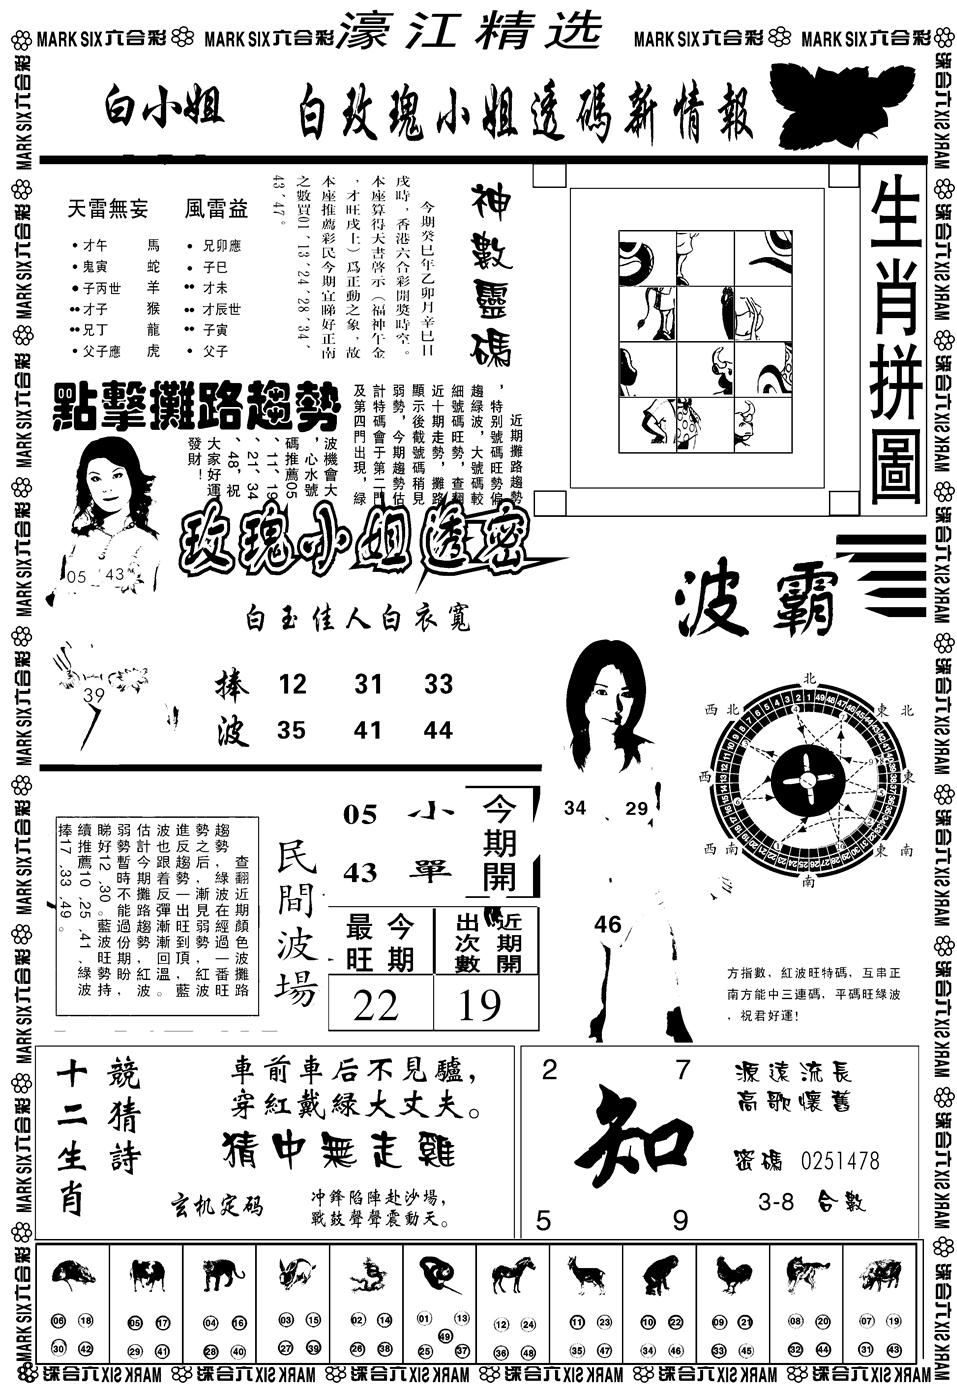 MARK SIX六合彩 MARK SIX六合彩 濠江精选 MARK SIX六合彩 MARK SIX六合彩
白小姐 白玫瑰小姐透碼新情報
天雷無妄 風雷益
才午 馬 兄卯應
鬼寅 蛇 子巳
子丙世 羊 才未
才子 猴 才辰世
兄丁 龍 子寅
父子應 虎 父子
神數靈碼
今期癸巳年乙卯月辛巳日
戌時，香港六合彩開獎時空。
本座算得天書啓示（福神午金
，才旺戌土）爲正動之象，故
本座推薦彩民今期宜睇好正南
之數買01、13、24、28、34、
43、47。
生肖拼圖
點擊攤路趨勢
近期攤路趨勢
，特别號碼旺勢偏
趨綠波，大號碼較
細號碼旺勢，查翻
近十期走勢，攤路
顯示後截號碼稍見
弱勢，今期趨勢估
計特碼會于第二門
及第四門出現，緑
波機會大
，心水號
碼推薦05
、11、19
、21、34
、48，祝
大家好運
發財！
玫瑰小姐透密
05 43
39
白玉佳人白衣寬
捧 12 31 33
波 35 41 44
波霸
34 29
46
北
西北 東北
西 東
西南 東南
南
方指數，紅波旺特碼，互串正
南方能中三連碼，平碼旺綠波
，祝君好運！
查翻近期顔色波攤路
趨勢，绿波在經過一番旺
勢之后，漸見弱勢，紅波
進反趨勢一出旺到頂，藍
波也跟着反彈漸漸回溫。
估計今期攤路趨勢，紅波
弱勢暫時不能過份期盼，
睇好12、30。藍波旺勢持
續推薦10、25、41，綠波
捧17、33、49。
民間波場
05 小 今期開
43 單
最旺 今期 出次數 近期開
22 19
十二生肖
競猜詩
車前車后不見驢，
穿紅戴緑大丈夫。
猜中無走雞
玄机定码
冲鋒陷陣赴沙場，
戰鼓聲聲震動天。
2 7
知
5 9
源遠流長
高歌懷舊
密碼 0251478
3-8 合數
06 18 05 17 04 16 03 15 02 14 01 13 12 24 11 23 10 22 09 21 08 20 07 19
49
30 42 29 41 28 40 27 39 26 38 25 37 36 48 35 47 34 46 33 45 32 44 31 43
MARK SIX六合彩 MARK SIX六合彩 MARK SIX六合彩 MARK SIX六合彩 MARK SIX六合彩